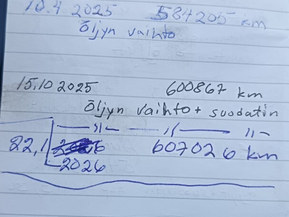 10.4 2025 584205 km
öljyn vaihto
15.10 2025 600867 km
öljyn vaihto + suodatin
—〃— —〃— —〃—
607026 km
2026